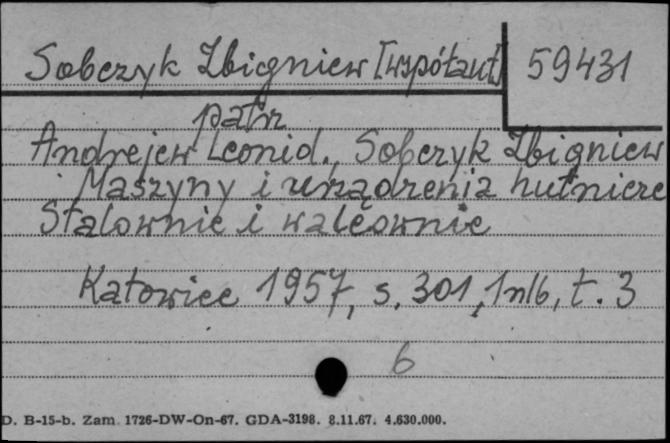 Sobczyk Zbigniew [współaut] 59431
patrz
Andrejew Leonid., Sobczyk Zbigniew
Maszyny i urządzenia hutnicze
Stalownie i walcownie
Katowice 1957, s. 301, 1 nlb, t. 3
6
D. B-15-b. Zam. 1726-DW-On-67. GDA-3198. 8.11.67. 4.630.000.